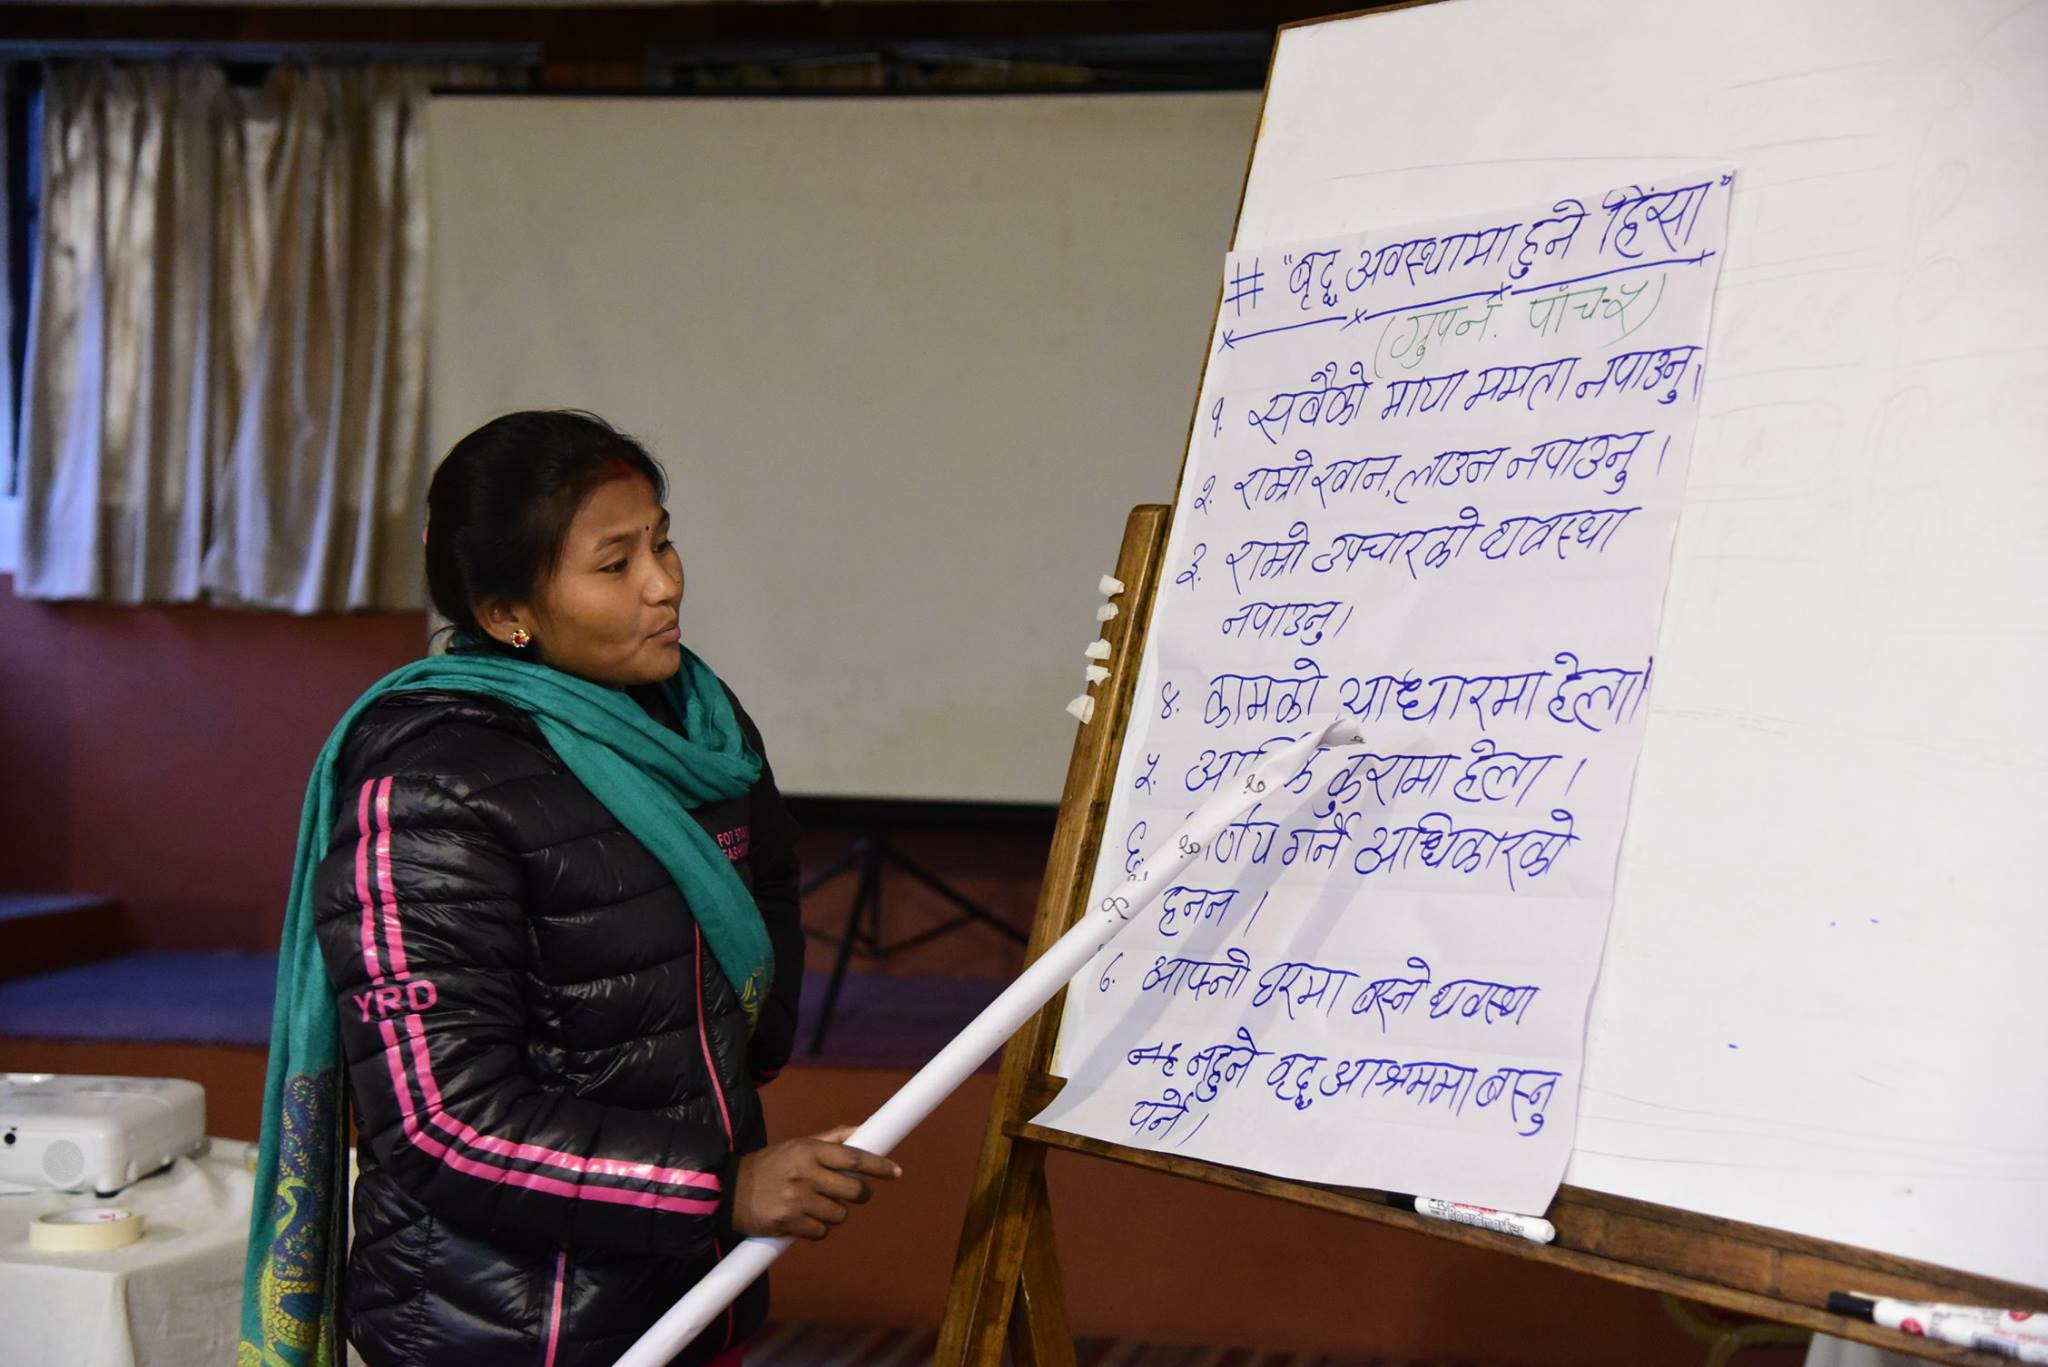 # "बृद्ध अवस्थामा हुने हिंसा"
(ग्रुप नं. पाँच-५)
१. सबैको माया ममता नपाउनु।
२. राम्रो खान, लाउन नपाउनु।
३. राम्रो उपचारको व्यवस्था
नपाउनु।
४. कामको आधारमा हेला।
५. कुरामा हेला।
६. गर्ने अधिकारको
हनन।
७. आफ्नो घरमा बस्ने व्यवस्था
नहुने वृद्ध आश्रममा बस्नु
पर्ने।
YRD
Boardmarker